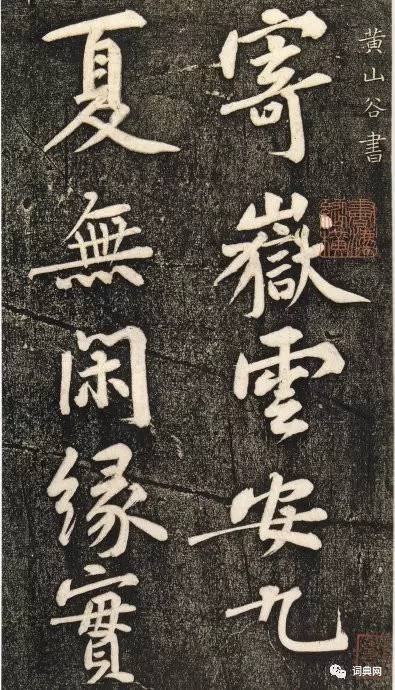 黄山谷書
寄嶽雲安九
夏無閑緣實
词典网